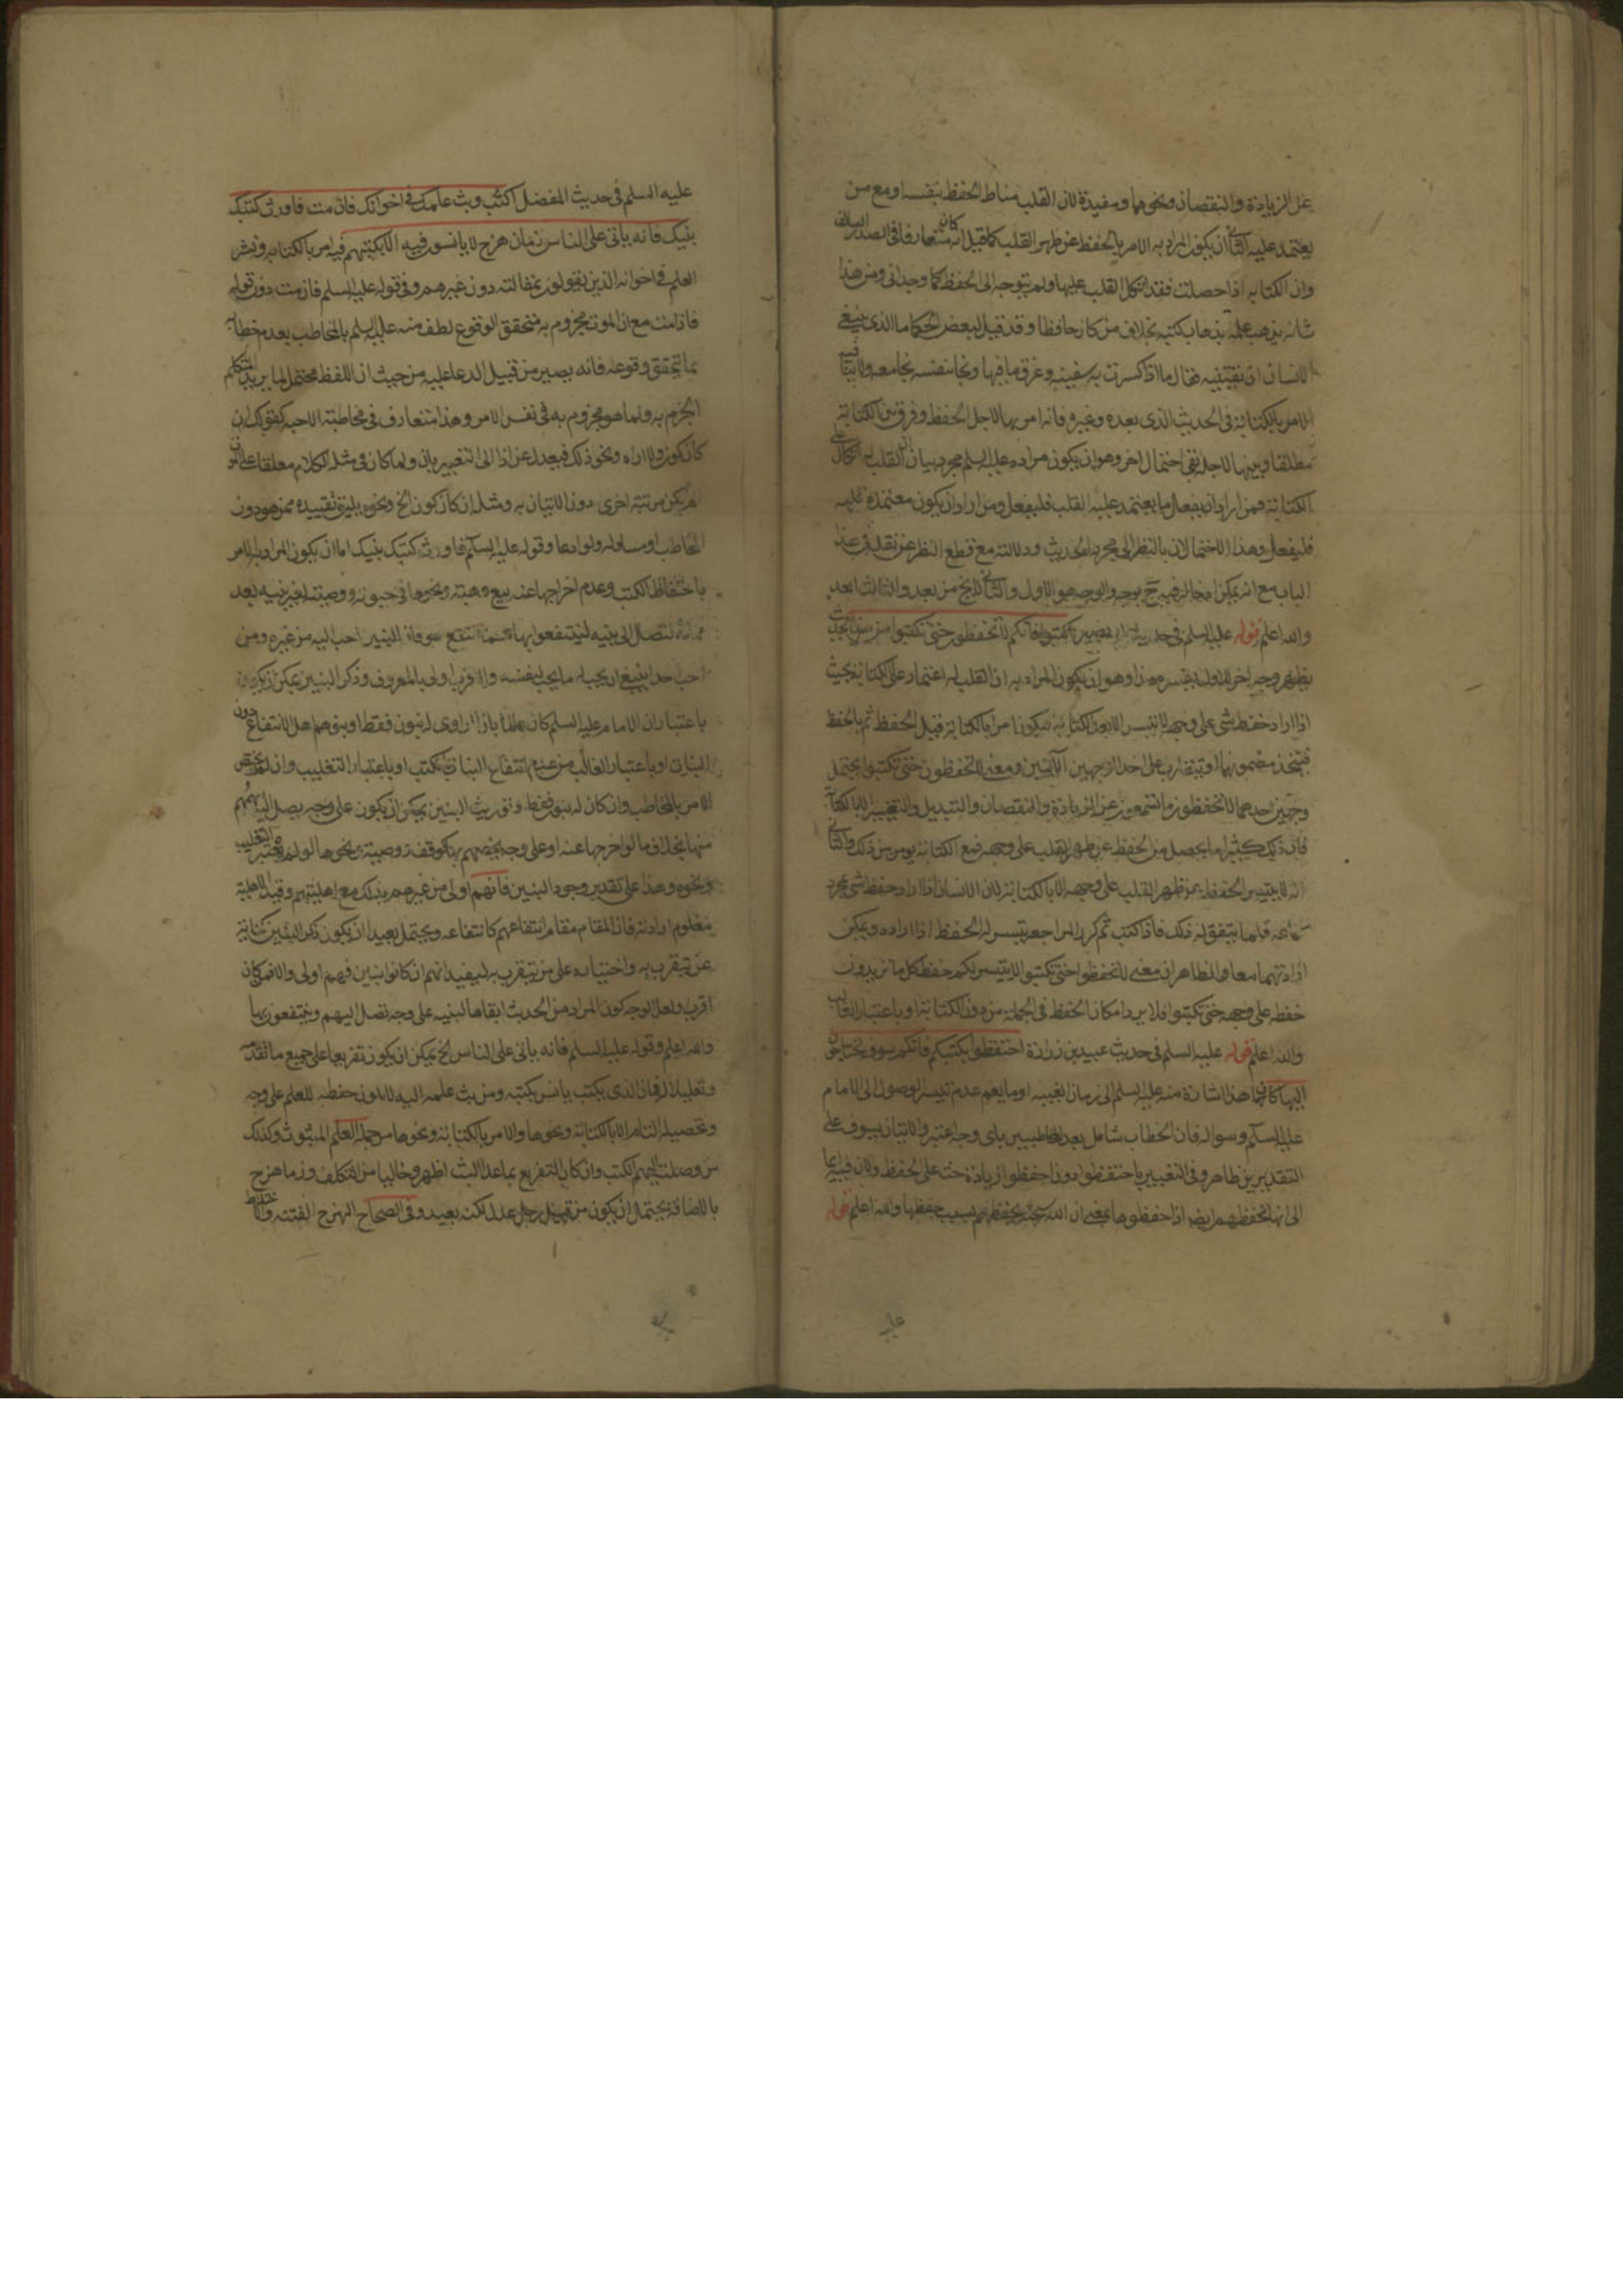 عن الزيادة والنقصان ونحوهما ومفيدة لان القلب مناط الحفظ بنفسه او مع من
يعتمد عليه الثاني ان يكون المراد به الامر بالحفظ عن ظهر القلب كما قيل انه كان متعارفا في الصدر السالف
وان الكتابه اذا حصلت فقد اتكل القلب عليها ولم يتوجه الى الحفظ كما وجداني ومن هذا
شانه يذهب علمه بذهاب كتبه بخلاف من كان حافظا وقد قيل لبعض الحكما ما الذي ينبغي
للانسان ان يقتنيه فقال ما اذا كسرت به سفينه وغرق ما فيها ونجا بنفسه نجا معه ولا ينافيه
الامر بالكتابة في الحديث الذي بعده وغيره فانه امر بها لاجل الحفظ وفرق بين الكتابة
مطلقا وبينها لاجله بقي احتمال اخر وهو ان يكون مراده عليه السلم مجرد بيان ان القلب له اتكال على
الكتابة فمن اراد ان يفعل ما يعتمد عليه القلب فليفعل ومن اراد ان يكون معتمده قلبه
فليفعل وهذا الاحتمالان بالنظر الى مجرد الحديث ودلالته مع قطع النظر عن نقله في هذا
الباب مع انه يمكن ادخاله فيه ح بوجه والوجه هو الاول والثاني لا يخ من بعد والثالث ابعد
والله اعلم قوله عليه السلم في حديث ابي بصير اكتبوا فانكم لا تحفظون حتى تكتبوا من هذا الحديث
يظهر وجه اخر للاول يفسره هذا وهو ان يكون المراد به ان القلب له اعتماد على الكتابة بحيث
اذا اراد حفظ شي على وجهه لا يتيسر الا بعد الكتابه فيكون امرا بالكتابة قبل الحفظ ثم بالحفظ
فيتحد مضمونهما او يتقارب على احد الوجهين الآتيين ومعنى لا تحفظون حتى تكتبوا يحتمل
وجهين احدهما لا تحفظون ما تسمعون عن الزيادة والنقصان والتبديل والتغيير الا بالكتابة
فان ذلك كثيرا ما يحصل من الحفظ عن ظهر القلب على وجهه فمع الكتابة يومن من ذلك والثاني
انه لا يتيسر الحفظ عن ظهر القلب على وجهه الا بالكتابة لان الانسان اذا اراد حفظ شي بمجرد
سماعه قلما يتفق له ذلك فاذا كتب ثم كرر المراجعه يتيسر له الحفظ اذا اراده ويمكن
ارادتهما معا والظاهر ان معنى لا تحفظوا حتى تكتبوا لا يتيسر لكم حفظ كل ما تريدون
حفظه على وجهه حتى تكتبوا فلا يرد امكان الحفظ في الجملة من دون الكتابة او باعتبار الغالب
والله اعلم قوله عليه السلم في حديث عبيد بن زرارة احتفظوا بكتبكم فانكم سوف تحتاجون
اليها كان هذا اشارة منه عليه السلم الى زمان الغيبه او ما يعم عدم تيسر الوصول الى الامام
عليه السلم وسواله فان الخطاب شامل بعد المخاطبين باي وجه اعتبر والاتيان بسوف على
التقديرين ظاهر وفي التعبير باحتفظوا دون احفظوا زيادة حث على الحفظ ولان فيه ايما
الى انها تحفظهم ايضا اذا حفظوها بمعنى ان الله سبحنه يحفظهم بسبب حفظها والله اعلم قوله
عليه السلم في حديث المفضل اكتب وبث علمك في اخوانك فان مت فاورث كتبك
بنيك فانه ياتي على الناس زمان هرج لا يانسون فيه الا بكتبهم فيه امر بالكتابه ونشر
العلم في اخوانه الذين يقولون بمقالته دون غيرهم وفي قوله عليه السلم فان مت دون قوله
فاذا مت مع ان الموت مجزوم به متحقق الوقوع لطف منه عليه السلم بالمخاطب بعدم خطابه
بما يتحقق وقوعه فانه يصير من قبيل الدعا عليه من حيث ان اللفظ محتمل لما يريد المتكلم
الجزم به ولما هو مجزوم به في نفس الامر وهذا متعارف في مخاطبة الاحبه كقولك ان
كان كون ولا اراه ونحو ذلك فيعدل عن اذا الى التعبير بان ولما كان في مثله الكلام معلقا على ان
لم يكن مرتبة اخرى دون الاتيان به ومثل ان كان كون الخ ونحوه يليق تقييده ممن هو دون
المخاطب او مساو له ولو ادعا وقوله عليه السلم فاورث كتبك بنيك اما ان يكون المراد به الامر
باحتفاظ الكتب وعدم اخراجها عنه ببيع وهبته ونحوها في حيوته ووصيته لغير بنيه بعد
لتصل الى بنيه لينتفعوا بها فان البنين احب اليه من غيره ومن
احب احدا ينبغي ان يحب له ما يحب لنفسه والاقرب اولى بالمعروف وذكر البنين يمكن ان يكون
باعتبار ان الامام عليه السلم كان عالما بان الراوي له بنون فقط او بنوهم اهل الانتفاع دون
البنات او باعتبار الغالب من عدم انتفاع البنات بالكتب او باعتبار التغليب وان لم يختص
الامر بالمخاطب وان كان له بنون فقط وتوريث البنين يمكن ان يكون على وجه يصل اليهم سهمهم
منها بخلاف ما لو اخرجها عنه او على وجه يخصهم بها كوقف ووصية ونحوها لو لم يعتبر التغليب
ونحوه وهذا على تقدير وجود البنين فانهم اولى من غيرهم بذلك مع اهليتهم وقيد الاهلية
معلوم ارادته فان المقام مقام انتفاعهم كانتفاعه ويحتمل بعيدا ان يكون ذكر البنين كناية
عن يقرب به واختياره على من يقرب به ليفيد انهم ان كانوا بنين فهم اولى والا فمن كان
اقرب ولعل الوجه كون المراد من الحديث ابقاها لبنيه على وجه تصل اليهم وينتفعون بها
والله اعلم وقوله عليه السلم فانه ياتي على الناس الخ يمكن ان يكون تفريعا على جميع ما تقدمه
وتعليلا له فان الذي يكتب يانس بكتبه ومن يبث علمه اليه لا يكون حفظه للعلم على وجه
وتحصيله التام الا بالكتابة ونحوها والامر بالكتابة ونحوها من جملة العلم المبثوث وكذلك
من وصلت اليهم الكتب وان كان التفريع بما عدا البث اظهر وخاليا من التكلف وزمان هرج
بالاضافة يحتمل ان يكون من قبيل رجل عدل لكنه بعيد وفي الصحاح الهرج الفتنة والاختلاط